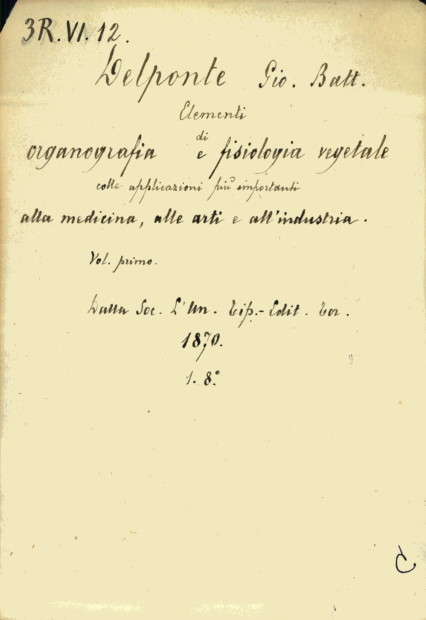 3R.VI.12.
Delponte Gio. Batt.
Elementi
di
organografia e fisiologia vegetale
colle applicazioni più importanti
alla medicina, alle arti e all'industria.
Vol. primo.
Dalla Soc. L'Un. Tip.-Edit. Tor.
1870.
1. 8.°
C